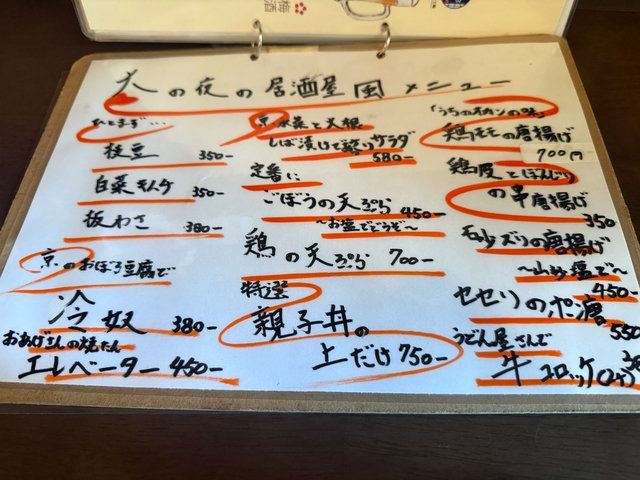 梅酒
火の夜の居酒屋風メニュー
ひとまず…
枝豆 350-
白菜キムチ 350-
板わさ 380-
京のおぼろ豆腐で
冷奴 380-
おあげさんの焼たん
エレベーター 450-
京水菜と大根
しば漬けと誘りサラダ
580-
定番に
ごぼうの天ぷら 450-
〜お塩でどうぞ〜
鶏の天ぷら 700-
特選
親子丼の
上だけ 750-
「うちのオカンの味」
鶏モモの唐揚げ
700円
鶏皮とぼんじり
の串唐揚げ
350
砂ズリの唐揚げ
〜山椒塩で〜
450-
セセリのポン酢
550
うどん屋さんで
牛コロッケ